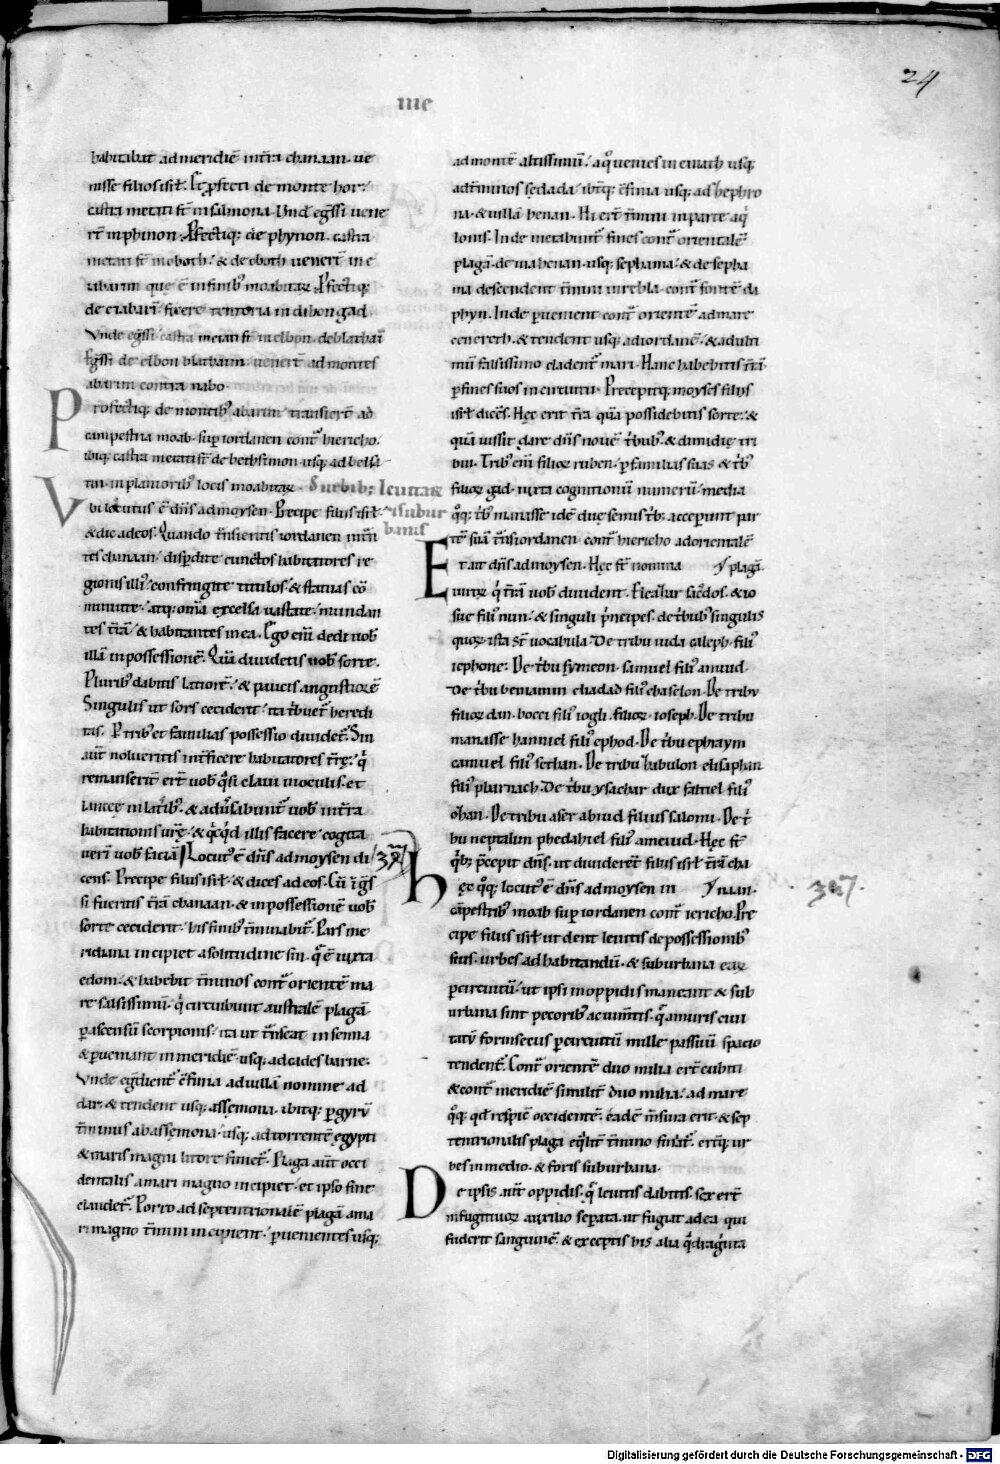 24
habitabat ad meridiē in t̄ra chanaan. ue
nisse filios isrl̄. Et p̄fecti de monte hor.
castra metati st̄ in salmona. Vnd̄ egssi uene
rt̄ in phinon. Pfectiq; de phynon. castra
metati st̄ in oboth. & de oboth uenert̄ in ie
abarim que ē in finib; moabitaꝝ. Pfectiq;
de ieabari. fixere tentoria in dibon gad.
Vnde egssi castra metati st̄ in elbon. deblathaī
Egssi de elbon blathaim. uenert̄ ad montes
abarim contra nabo.
Profectiq; de montib; abarim transiert̄ ad
campestria moab. sup iordanen cont̄ hiericho.
ibiq; castra metati st̄ de bethsimon usq; ad belsa
tin. in planiorib; locis moabitaꝝ. Suburb; leuitaꝝ
Vbi locutus ē dn̄s ad moysen. Precipe filiis isrl̄. suburbanis
& dic ad eos. Quando t̄nsieritis iordanen int̄n
tes chanaan. disp̄dite cunctos habitatores re
gionis illi'. confringite titulos. & statuas cō
minuite. atq; om̄a excelsa uastate. mundan
tes t̄rā. & habitantes in ea. Ego eni dedi uob̄
illā in possessionē. Quā diuidetis uob̄ sorte.
Plurib; dabitis latiorē. & paucis angustiorē
Singulis ut sors ceciderit. ita t̄buet̄ heredi
tas. P tribus et familias possessio diuidet̄. Sin
aut̄ nolueritis int̄ficere habitatores t̄rę. q̄
remanserint̄ ert̄ uob̄ q̄si claui in oculis. et
lanceę in laterib;. & aduersabunt̄ uob̄ in t̄ra
habitationis urę. & q̄cq̄d illis facere cogita
ueri uob̄ faciā. Locut' ē dn̄s ad moysen di
cens. Precipe filiis isrl̄. & dices ad eos. Cū īḡs
si fueritis t̄rā chanaan. & in possessionē uob̄
sorte ceciderit. his finib; t̄minabit̄. Pars me
ridiana incipiet a solitudine sin. q̄ ē iuxta
edom. & habebit t̄minos cont̄ orientē ma
re salsissimū. q̄ circuibunt australē plagā
p ascensū scorpionis. ita ut t̄nseat in senna
& pueniant in meridiē usq; ad cades barne.
Vnde eḡdient̄ cf̄inia ad uillā nomine ad
dar. & tendent usq; assemona. ibitq; p gyrū
t̄minus ab assemona. usq; ad torrentē ęgypti
& maris magni litore finiet̄. Plaga aut̄ occi
dentalis a mari magno incipiet. et ipso fine
claudet̄. Porro ad septentrionalē plagā a ma
ri magno t̄mini incipient. puenientes usq;
ad montē altissimū. a q̄ uenies in emath usq;
ad t̄minos sedada. ibt̄q; cf̄inia usq; ad hephro
na. & uillā henan. Hi ert̄ t̄mini in parte aq̄
lonis. Inde metabunt̄ fines cont̄ orientalē
plagā. de ma henan. usq; sephama. & de sepha
ma descendent t̄mini in rebla. cont̄ fontē da
phyn. Inde puenient cont̄ orientē ad mare
cenereth. & tendent usq; ad iordanē. & ad ulti
mū salsissimo cladent̄ mari. Hanc habebitis t̄rā
p fines suos in circuitu. Precepitq; moyses filiis
isrl̄ dicēs. Hęc erit t̄ra quā possidebitis sorte. &
quā iussit dare dn̄s nouē t̄bub;. & dimidię tri
bui. Trib' eni filioꝝ ruben. p familias suas & t̄b'
filioꝝ gad. iuxta cognitionū numerū. media
q̄q; t̄b' manasse idē duę semis t̄b; acceperunt par
tē suā t̄ns iordanen. cont̄ hiericho ad orientalē
plagā.
Et ait dn̄s ad moysen. Hęc st̄ nomina
uiroꝝ q̄ t̄rā uob̄ diuident. Eleazar sac̄dos. & io
sue fili' nun. & singuli p̄ncipes. de t̄bub; singulis
quoꝝ ista st̄ uocabula. De tribu iuda caleph. fili'
iephone. De t̄bu symeon. samuel fili' amiud.
De t̄bu beniamin eliadad fili' chaselon. De tribu
filioꝝ dan. bocci fili' iogli. filioꝝ ioseph. De tribu
manasse hanniel fili' ephod. De t̄bu ephraym
camuel fili' sethan. De tribu zabulon elisaphan
fili' pharnach. De t̄bu ysachar dux faltiel fili'
ozhan. De tribu aser ahiud filius salomi. De t̄
bu neptalim phedahel fili' ameiud. Hęc st̄
q̄b; p̄cepit dn̄s. ut diuideret̄ filiis isrl̄ t̄rā cha
naan.
Hęc q̄q; locut' ē dn̄s ad moysen in
cāpestrib; moab sup iordanen cont̄ iericho. Pre
cipe filiis isrl̄ ut dent leuitis de possessionib;
suis. urbes ad habitandū. & suburbana eaꝝ
p circuitū. ut ipsi in oppidis maneant & sub
urbana sint pecorib; ac iumt̄is. q̄ a muris ciui
tatū forinsecus p circuitū mille passuū spacio
tendent̄. Cont̄ orientē duo milia ert̄ cubiti
& cont̄ meridiē similit̄ duo milia. ad mare
q̄q; qd̄ respic̄ occidentē. eadē m̄sura erit. & sep
tentrionalis plaga eq̄lit̄ t̄mino finiet̄. ert̄q; ur
bes in medio. & foris suburbana.
De ipsis aut̄ oppidis. q̄ leuitis dabitis. sex ert̄
in fugitiuoꝝ auxilio sep̄ata. ut fugiat ad ea qui
fuderit sanguinē. & exceptis his alia q̄draginta
Digitalisierung gefördert durch die Deutsche Forschungsgemeinschaft - DFG